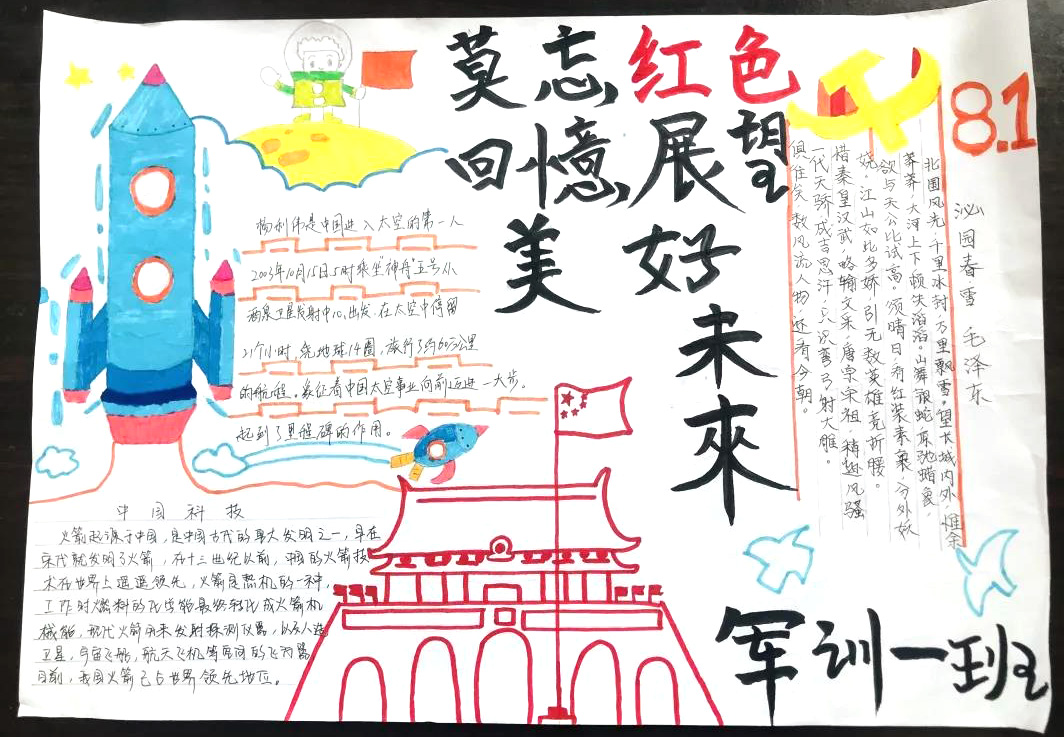 莫忘红色
回憶展望
美好未來
8.1
沁园春·雪 毛泽东
北国风光,千里冰封,万里飘雪。望长城内外,惟余
莽莽,大河上下,顿失滔滔。山舞银蛇,原驰蜡象,
欲与天公比试高。须晴日,看红装素裹,分外妖
娆。江山如此多娇,引无数英雄竞折腰。
惜秦皇汉武,略输文采,唐宗宋祖,稍逊风骚
一代天骄,成吉思汗,只识弯弓射大雕。
俱往矣,数风流人物,还看今朝。
杨利伟是中国进入太空的第一人
2003年10月15日5时乘坐"神舟"五号从
酒泉卫星发射中心出发,在太空中停留
21个小时,绕地球14圈,旅行了约60万公里
的航程。象征着中国太空事业向前迈进一大步。
起到了里程碑的作用。
中国科技
火箭起源于中国,是中国古代的重大发明之一,早在
宋代就发明了火箭,在十三世纪以前,中国的火箭技
术在世界上遥遥领先,火箭是热机的一种,
工作时燃料的化学能最终转化成火箭机
械能,现代火箭用来发射探测仪器,以及人造
卫星,宇宙飞船,航天飞机等空间的飞行器
目前,我国火箭已占世界领先地位。
军训一班